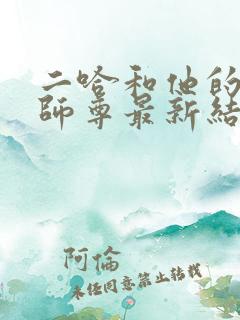 二哈和他的
師尊最新結
阿倫
未任同意禁止转载